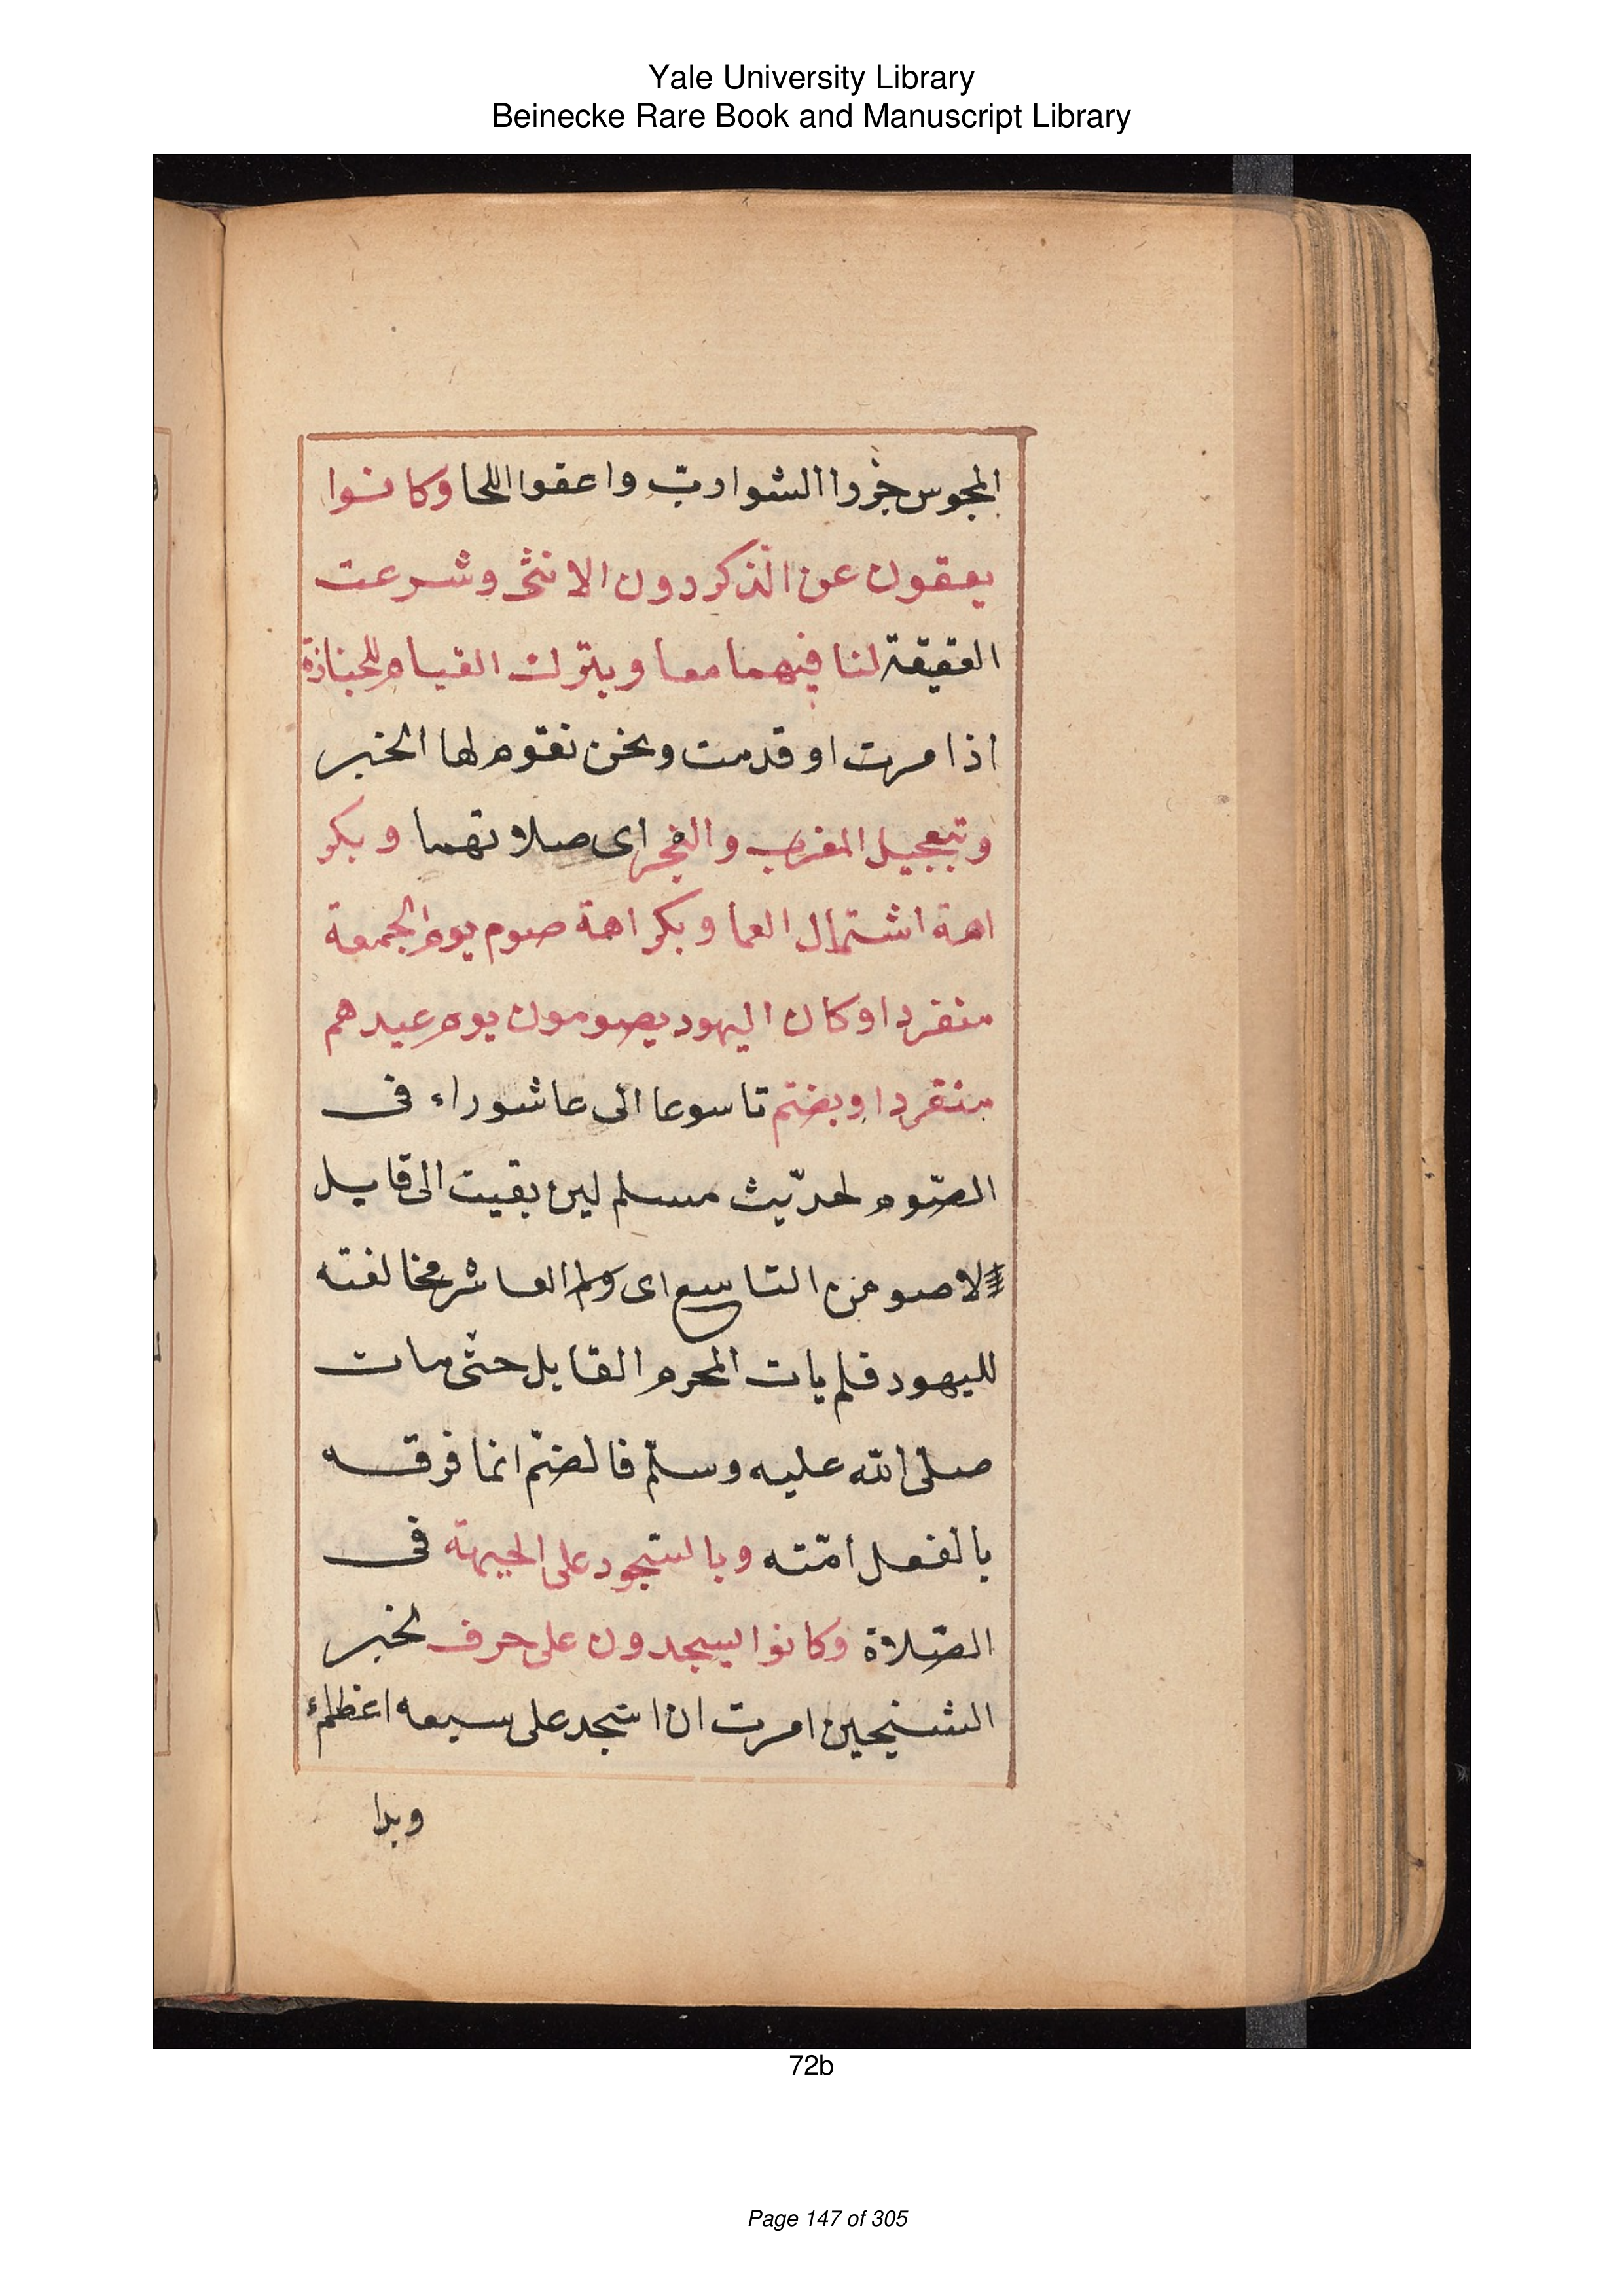 Yale University Library
Beinecke Rare Book and Manuscript Library
المجوس جزروا الشوارب واعقوا اللحا وكانوا
يعقون عن الذكر دون الانثى وشرعت
العقيقة لنا فيهما معا وبترك القيام للجنازة
اذا مرت او قدمت ونحن نقوم لها الخبر
وتبعجيل المغرب والفجر اى صلاتهما وبكر
اهة اشتمال العما وبكراهة صوم يوم الجمعة
منفردا وكان اليهود يصومون يوم عيدهم
منفردا وبضم تاسوعا الى عاشوراء فى
الصّوم لحديث مسلم لين بقيت الى قابل
لاصومن التاسع اى والعاشر مخالفته
لليهود فلم يات المحرم القابل حتى مات
صلى الله عليه وسلّم فالضم انما فرقه
بالفعل أمّته وبالسّجود على الجبهة فى
الصّلاة وكانوا يسجدون على حرف لخبر
الشيخين امرت ان اسجد على سبعه اعظم
وبدا
72b
Page 147 of 305